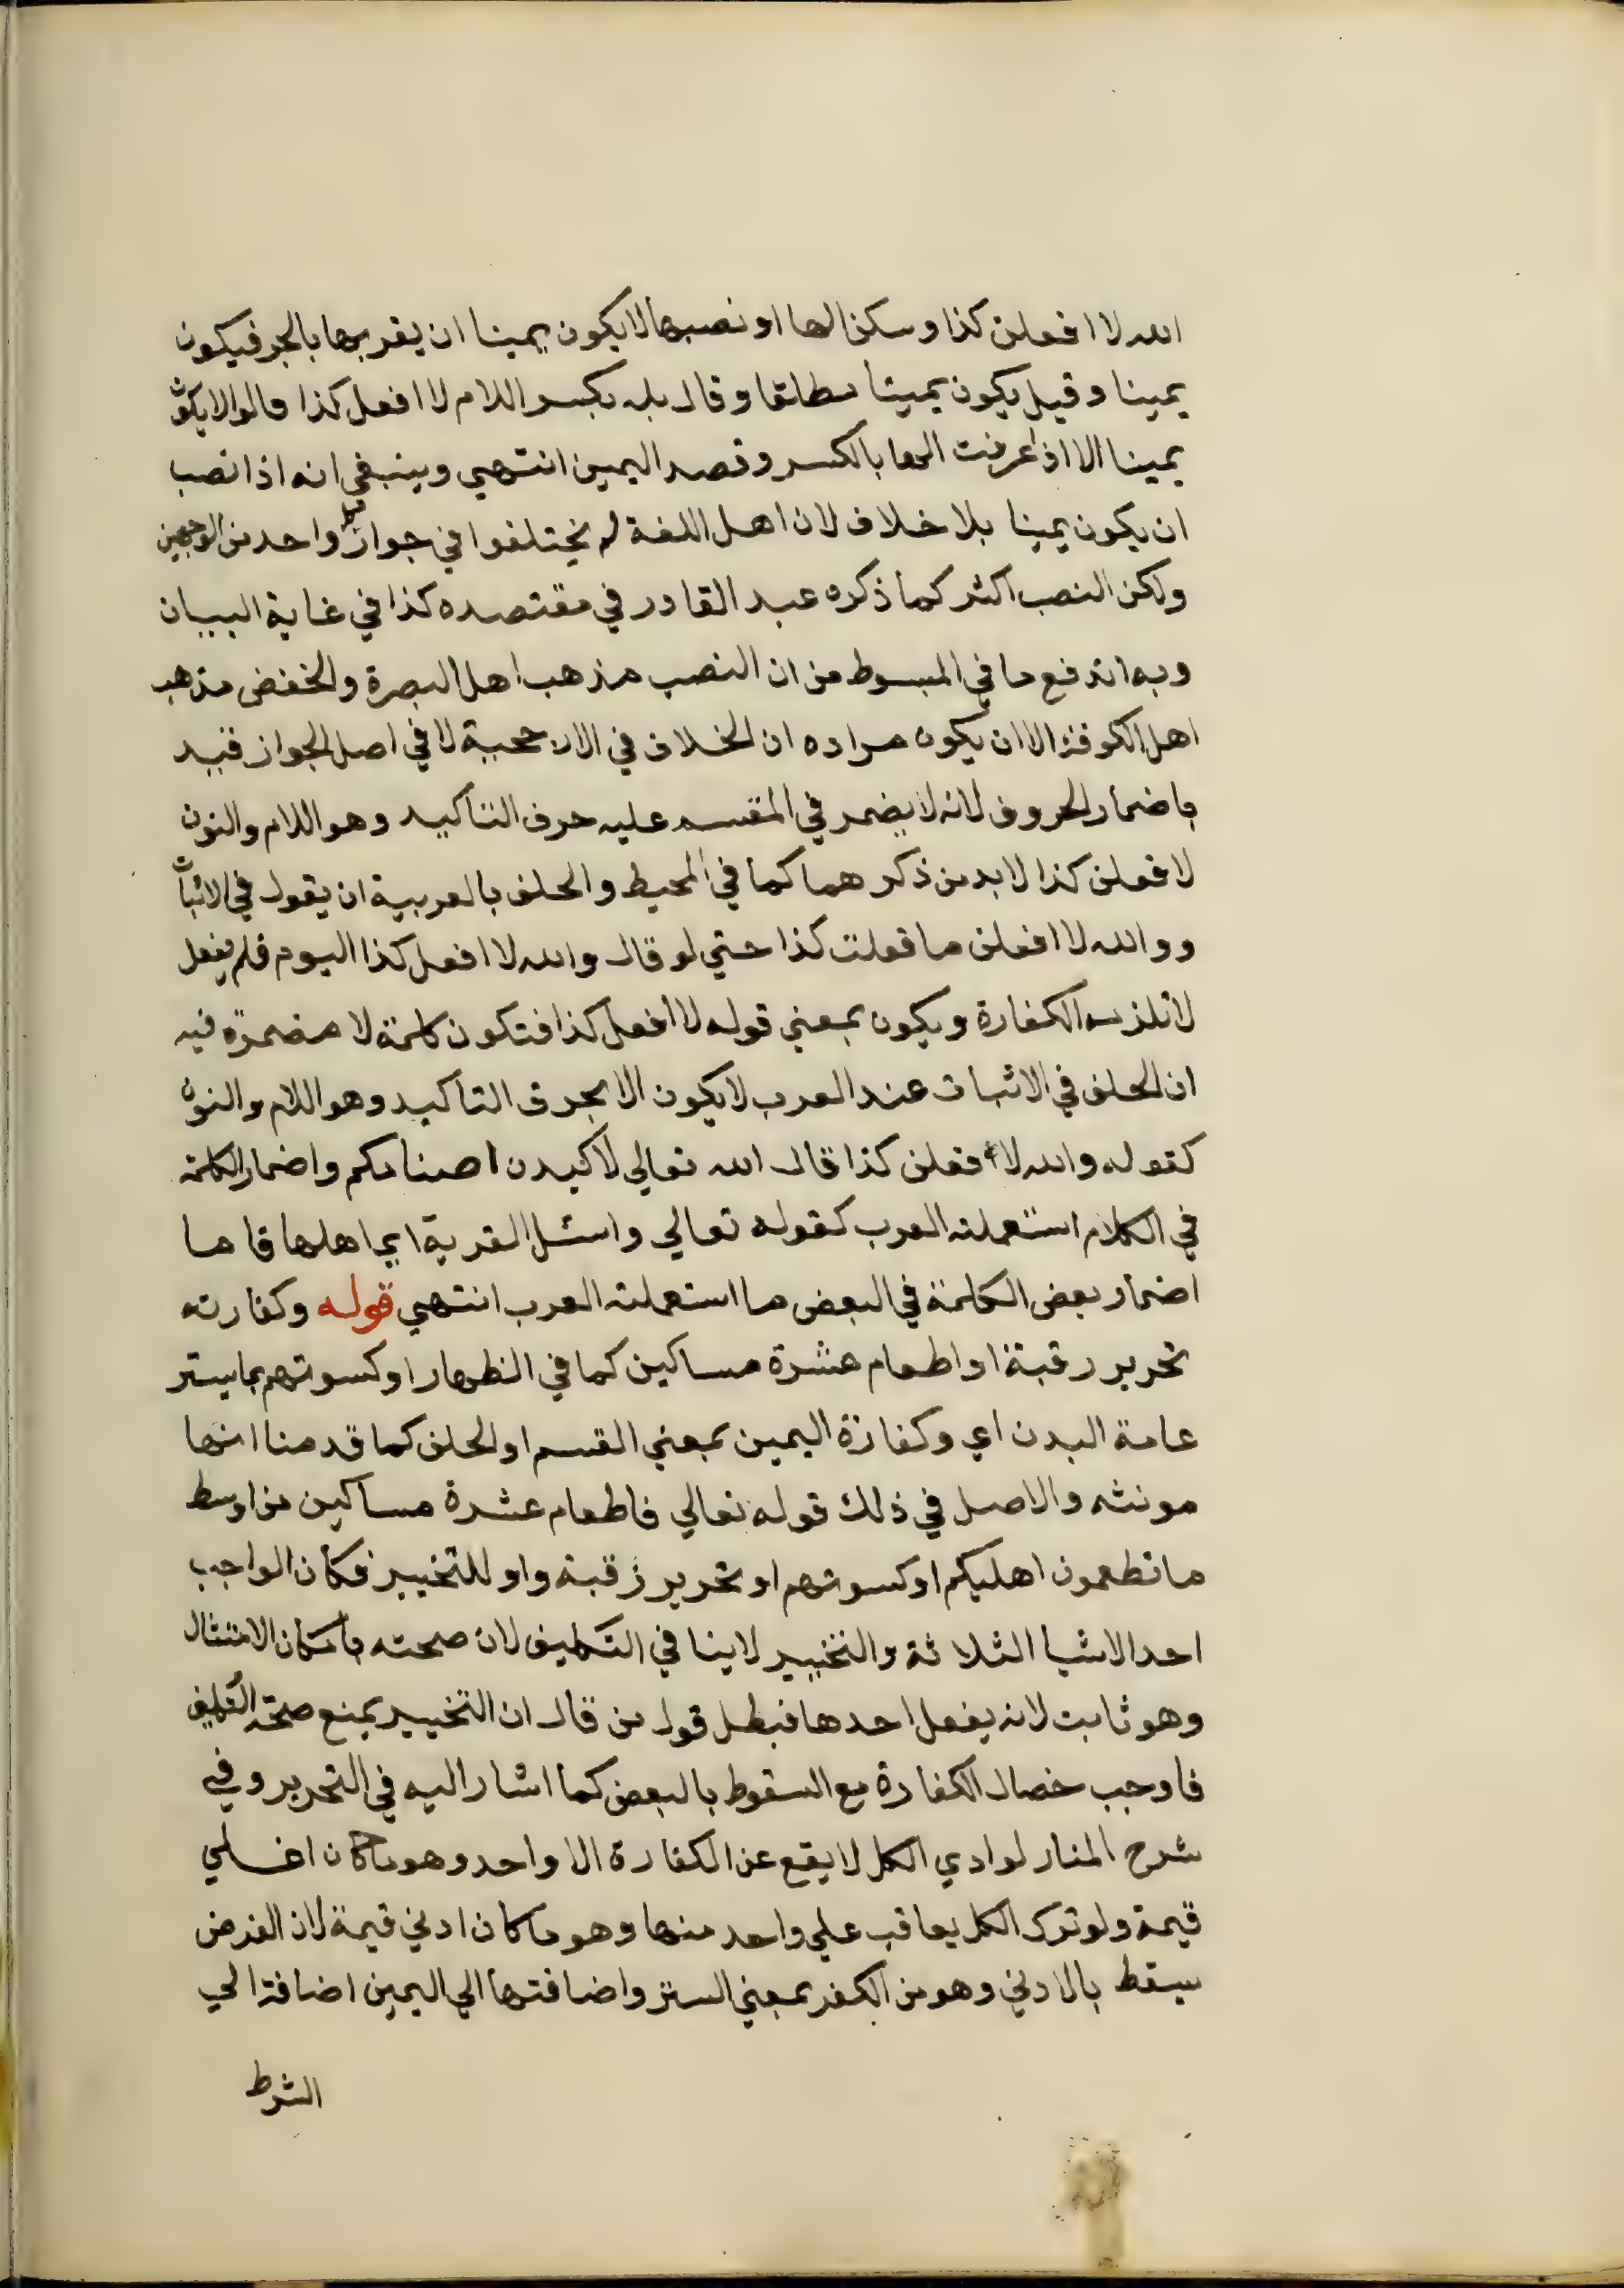 الله لا افعلن كذا وسكن الها او نصبها لا يكون يمينا ان يقربها بالجر فيكون
يمينا وقيل يكون يمينا مطلقا وقال بله بكسر اللام لا افعل كذا قالوا لا يكون
يمينا الا اذا عرفت الها بالكسر وقصد اليمين انتهي وينبغي انه اذا نصب
ان يكون يمينا بلا خلاف لان اهل اللغة لم يختلفوا في جواز كل واحد من الوجهين
ولكن النصب اكثر كما ذكره عبد القادر في مقتصده كذا في غاية البيان
وبه اندفع ما في المبسوط من ان النصب مذهب اهل البصرة والخفض مذهب
اهل الكوفة الا ان يكون مراده ان الخلاف في الارجحية لا في اصل الجواز قيد
باضمار الحروف لانه لا يضمر في المقسم عليه حرف التاكيد وهو اللام والنون
لافعلن كذا لابد من ذكرهما كما في المحيط والحلف بالعربية ان يقول في الاثبات
ووالله لا افعلن ما فعلت كذا حتي لو قال والله لا افعل كذا اليوم فلم يفعل
لا تلزمه الكفارة ويكون بمعني قوله لا افعل كذا فتكون كلمة لا مضمرة فيه
ان الحلف في الاثبات عند العرب لا يكون الا بحرف التاكيد وهو اللام والنون
كقوله والله لا افعلن كذا قال الله تعالي لاكيدن اصنامكم واضمار الكلمة
في الكلام استعملته العرب كقوله تعالي واسئل القرية اي اهلها فاما
اضمار بعض الكلمة في البعض ما استعملته العرب انتهي قوله وكفارته
تحرير رقبة او اطعام عشرة مساكين كما في الظهار او كسوتهم بما يستر
عامة البدن اي وكفارة اليمين بمعني القسم او الحلف كما قدمنا انها
مونثه والاصل في ذلك قوله تعالي فاطعام عشرة مساكين من اوسط
ما تطعمون اهليكم او كسوتهم او تحرير رقبة واو للتخيير فكان الواجب
احد الاشيا الثلاثة والتخيير لا ينافي التكليف لان صحته بامكان الامتثال
وهو ثابت لانه يفعل احدها فبطل قول من قال ان التخيير يمنع صحة التكليف
فاوجب خصال الكفارة مع السقوط بالبعض كما اشار اليه في التحرير وفي
شرح المنار لو ادي الكل لا يقع عن الكفارة الا واحد وهو ما كان اغلي
قيمة ولو ترك الكل يعاقب علي واحد منها وهو ما كان ادني قيمة لان الفرض
سيقط بالادني وهو من الكفر بمعني الستر واضافتها الي اليمين اضافة الي
الشرط